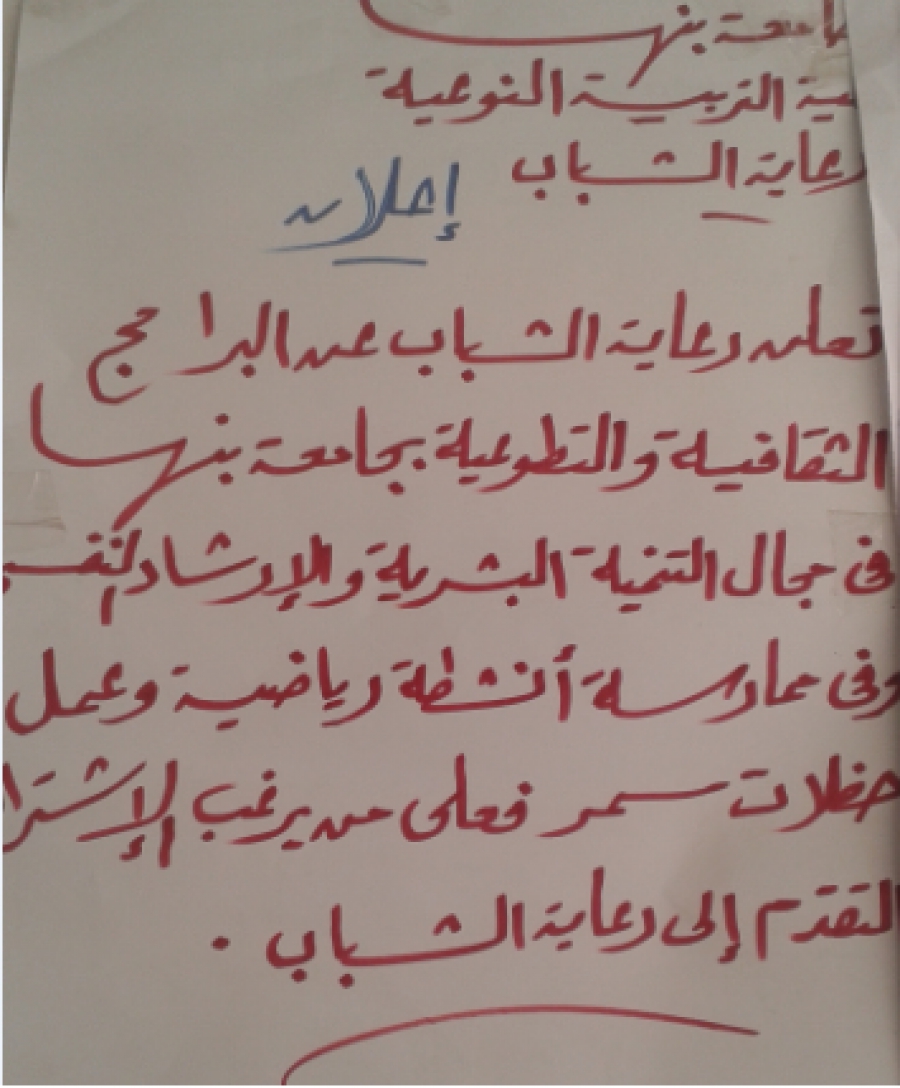 جامعة بنها
كلية التربية النوعية
رعاية الشباب
إعلان
تعلن رعاية الشباب عن البرامج
الثقافية والتطوعية بجامعة بنها
فى مجال التنمية البشرية والإرشاد النفسى
وفى ممارسة أنشطة رياضية وعمل
حفلات سمر فعلى من يرغب الإشترا
التقدم إلى رعاية الشباب .